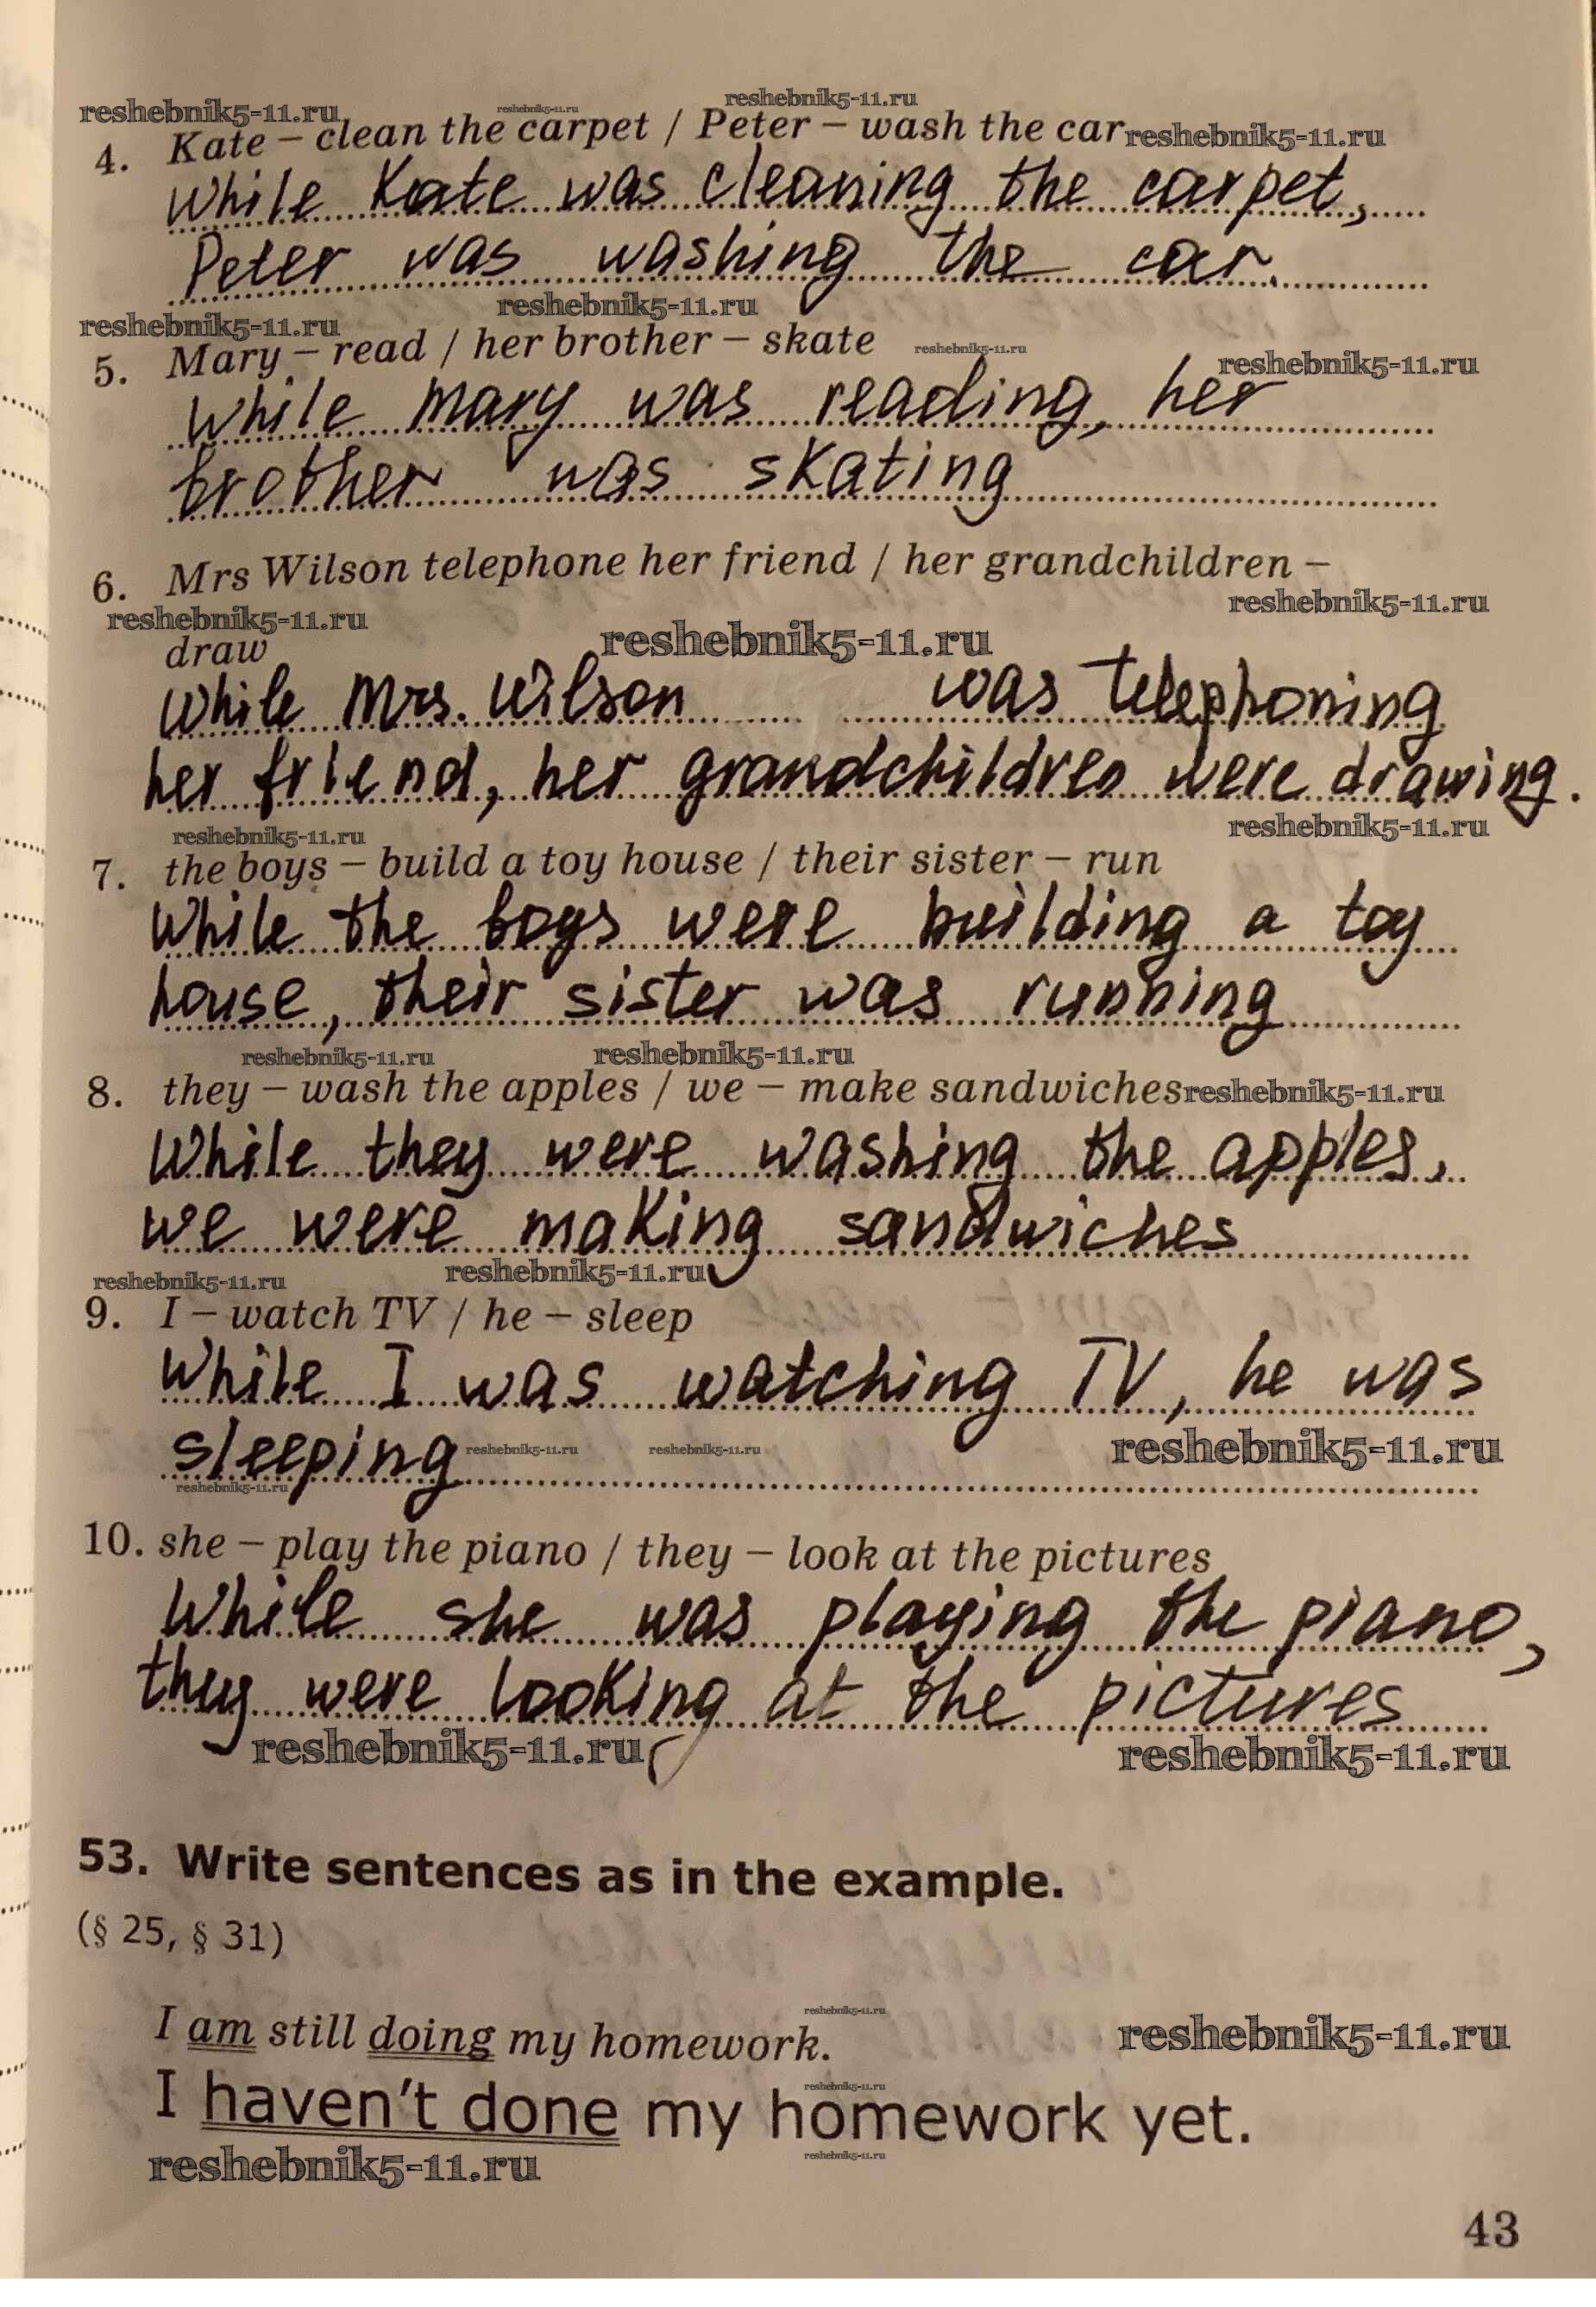 reshebnik5-11.ru reshebnik5-11.ru reshebnik5-11.ru
4. Kate – clean the carpet / Peter – wash the car reshebnik5-11.ru
While Kate was cleaning the carpet,
Peter was washing the car.
reshebnik5-11.ru reshebnik5-11.ru
5. Mary – read / her brother – skate reshebnik5-11.ru reshebnik5-11.ru
While Mary was reading, her
brother was skating
6. Mrs Wilson telephone her friend / her grandchildren –
reshebnik5-11.ru reshebnik5-11.ru
draw reshebnik5-11.ru
While Mrs. Wilson was telephoning
her friend, her grandchildren were drawing.
reshebnik5-11.ru reshebnik5-11.ru
7. the boys – build a toy house / their sister – run
While the boys were building a toy
house, their sister was running
reshebnik5-11.ru reshebnik5-11.ru
8. they – wash the apples / we – make sandwiches reshebnik5-11.ru
While they were washing the apples,
we were making sandwiches
reshebnik5-11.ru reshebnik5-11.ru
9. I – watch TV / he – sleep
While I was watching TV, he was
sleeping reshebnik5-11.ru reshebnik5-11.ru reshebnik5-11.ru
reshebnik5-11.ru
10. she – play the piano / they – look at the pictures
While she was playing the piano,
they were looking at the pictures
reshebnik5-11.ru reshebnik5-11.ru
53. Write sentences as in the example.
(§ 25, § 31)
reshebnik5-11.ru
I am still doing my homework. reshebnik5-11.ru
reshebnik5-11.ru
I haven't done my homework yet.
reshebnik5-11.ru reshebnik5-11.ru
43